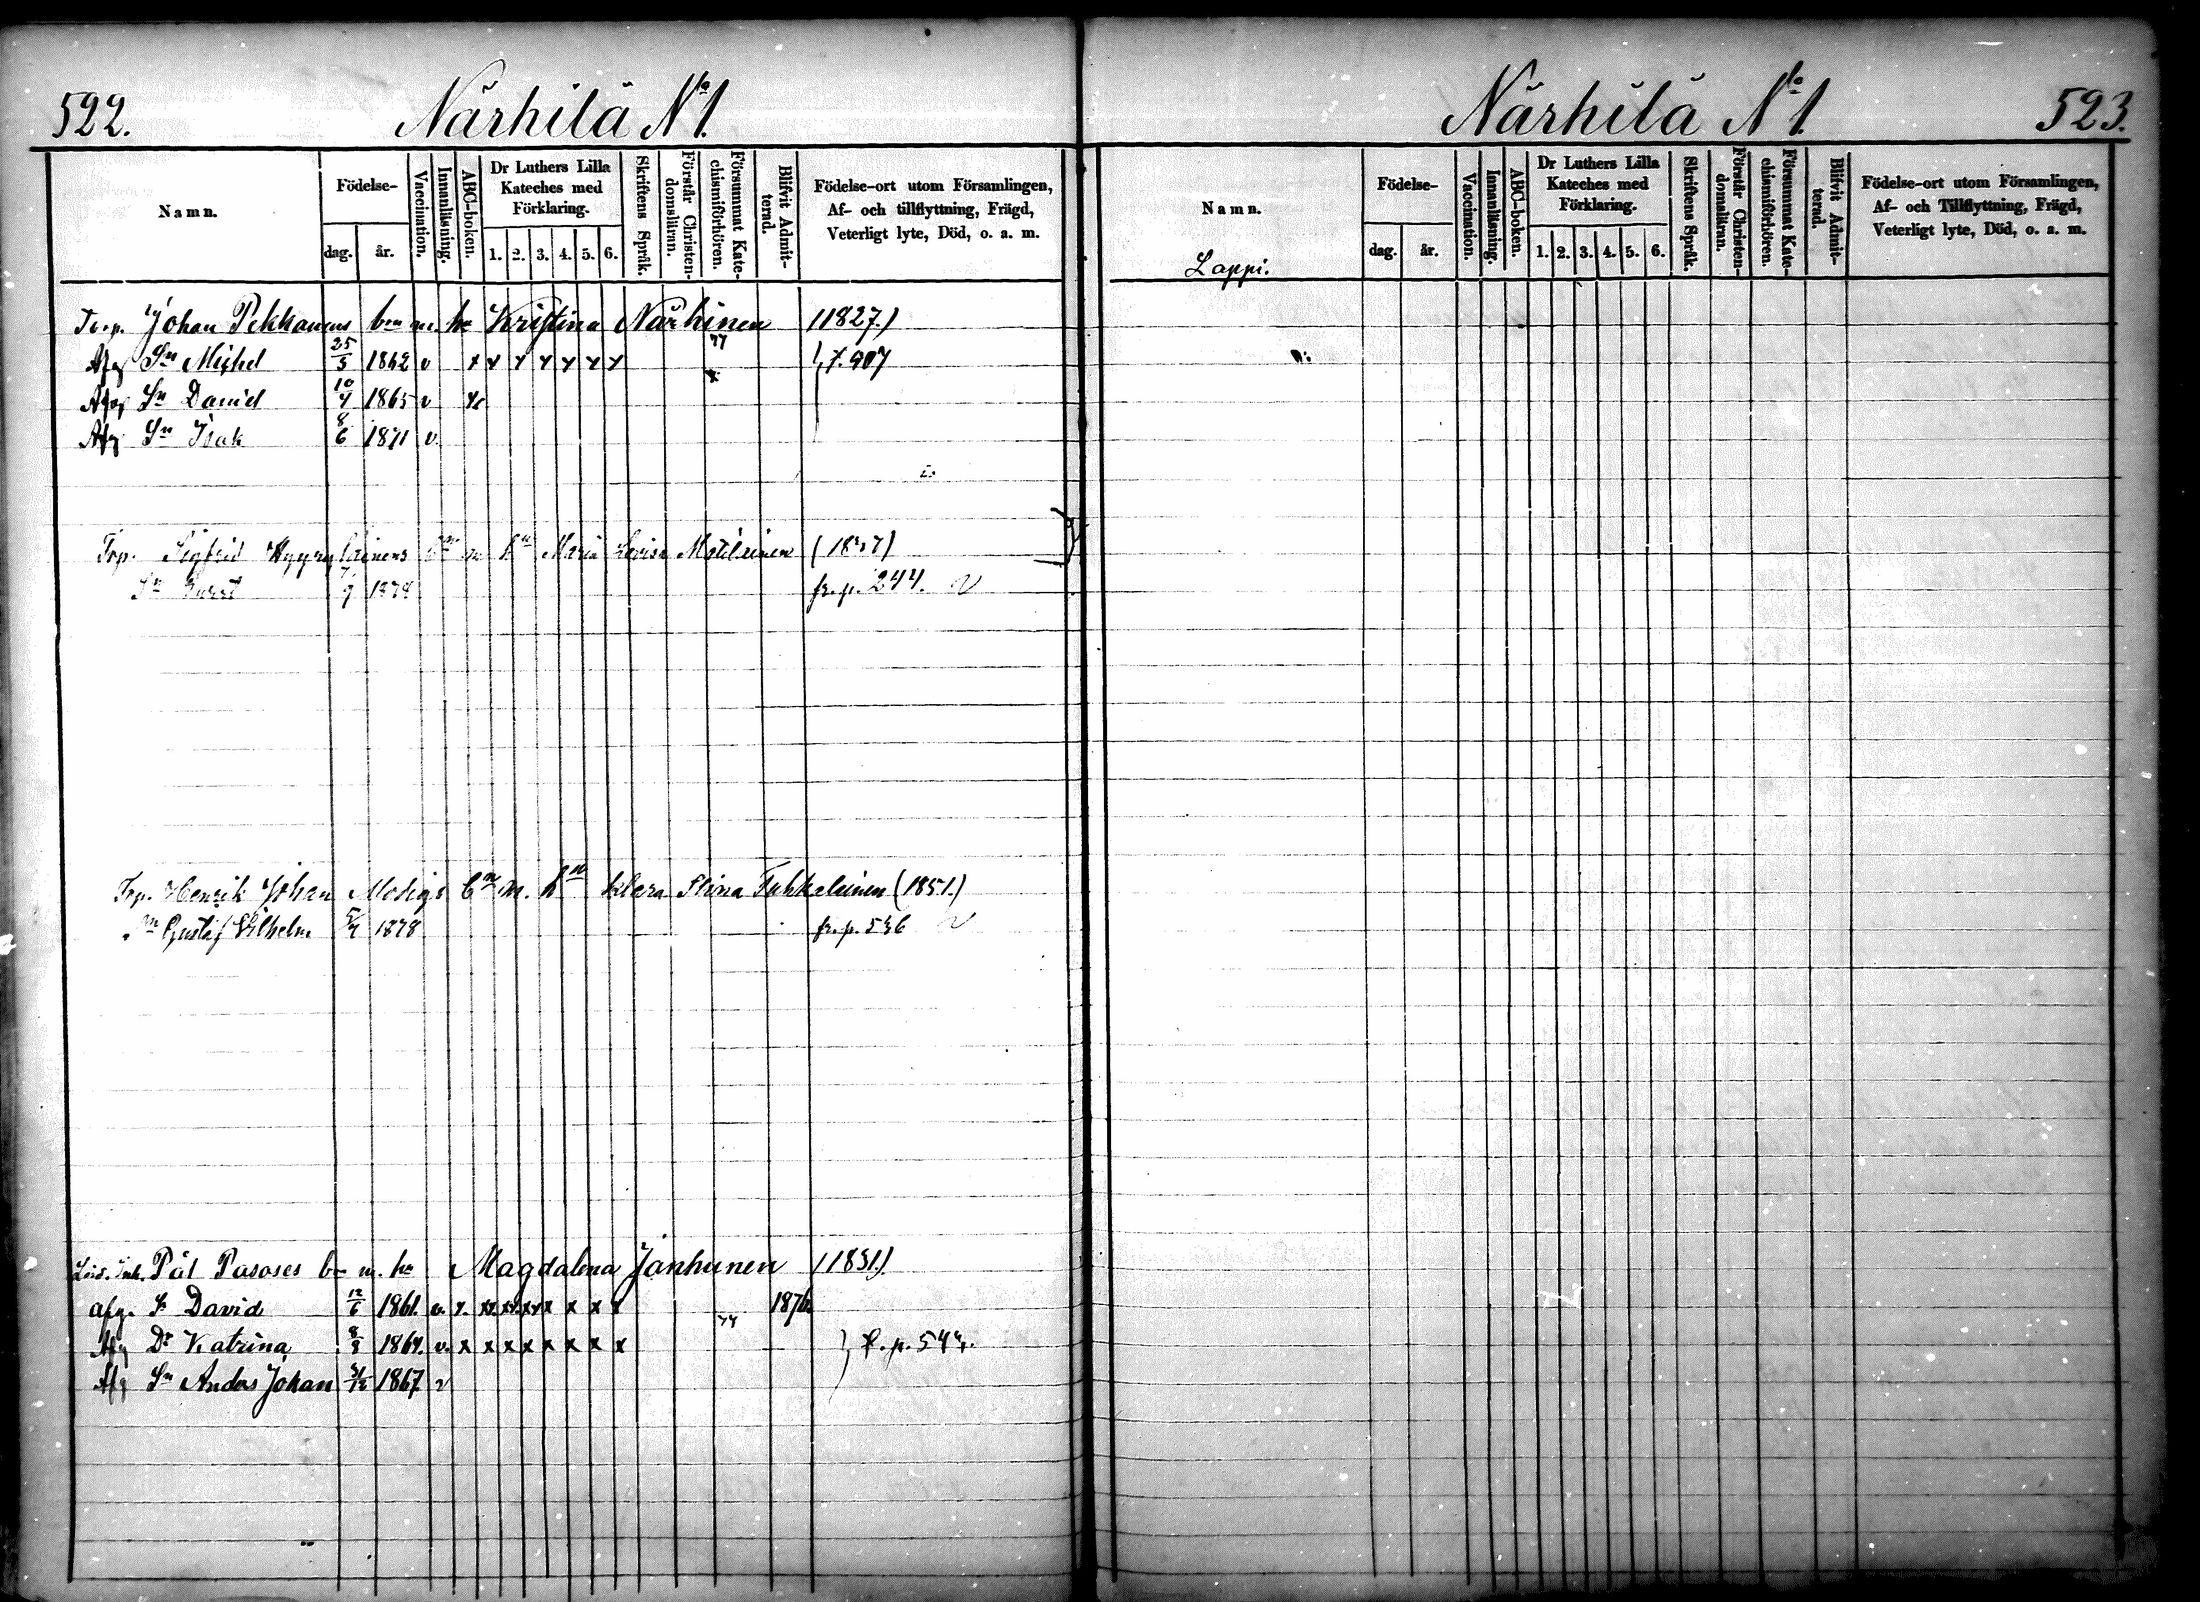 522.
Närhilä No 1.
Namn.
Födelse-
dag.
år.
Vaccination.
Innanläsning.
ABC-boken.
Dr Luthers Lilla
Kateches med
Förklaring.
1. 2. 3. 4. 5. 6.
Skriftens Språk.
Förstår Christen-
domsläran.
Försummat Kate-
chismiförhören.
Blifvit Admit-
terad.
Födelse-ort utom Församlingen,
Af- och tillflyttning, Frägd,
Veterligt lyte, Död, o. a. m.
Johan Pekkanens bn m. hu Kristina Närhinen (1827.)
Afg Sn Michel 25/3 1862 v x x x x x x x 77
Sn David 10/4 1865 v
Afg Sn Isak 8/6 1871 v.
Trp. Sigfrid m Maria Lovisa (18
1878 fr. p. 244. v
Trp. Henrik Johan m. Klara Stina (1851.)
Sn Gustaf Vilhelm 1878 fr. p. 536 v
Pål Pasoses bn m. hu Magdalena Janhunen (1831.)
afg. S. David 12/6 1861. v. 1876
Afg Dr Katrina 1864. v. x x x x x x x x 77
Afg Sn Anders Johan 1867 v
523.
Närhilä No 1.
Namn.
Lappi.
Födelse-
dag.
år.
Vaccination.
Innanläsning.
ABC-boken.
Dr Luthers Lilla
Kateches med
Förklaring.
1. 2. 3. 4. 5. 6.
Skriftens Språk.
Förstår Christen-
domsläran.
Försummat Kate-
chismiförhören.
Blifvit Admit-
terad.
Födelse-ort utom Församlingen,
Af- och Tillflyttning, Frägd,
Veterligt lyte, Död, o. a. m.